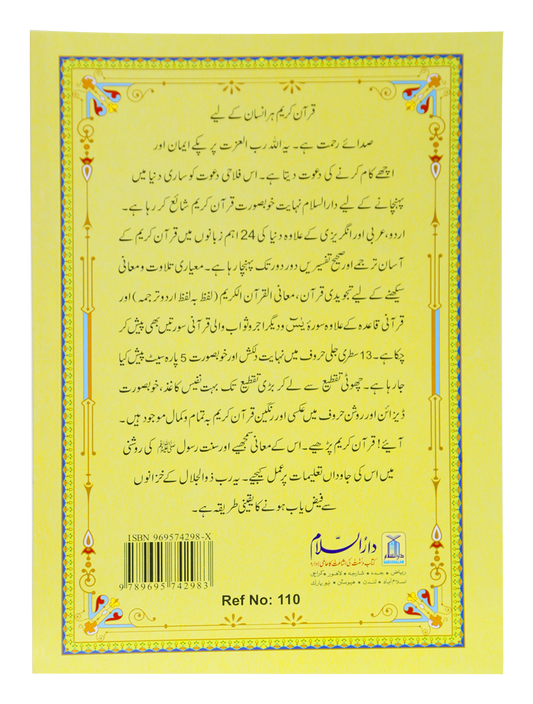 قرآن کریم ہر انسان کے لیے
صدائے رحمت ہے۔ یہ اللہ رب العزت پر پکے ایمان اور
اچھے کام کرنے کی دعوت دیتا ہے۔ اس فلاحی دعوت کو ساری دنیا میں
پہنچانے کے لیے دارالسلام نہایت خوبصورت قرآن کریم شائع کر رہا ہے۔
اردو، عربی اور انگریزی کے علاوہ دنیا کی 24 اہم زبانوں میں قرآن کریم کے
آسان ترجمے اور صحیح تفسیریں دور دور تک پہنچا رہا ہے۔ معیاری تلاوت و معانی
سیکھنے کے لیے تجویدی قرآن، معانی القرآن الکریم (لفظ بہ لفظ اردو ترجمہ) اور
قرآنی قاعدہ کے علاوہ سورۂ یٰسٓ و دیگر اجر و ثواب والی قرآنی سورتیں بھی پیش کر
چکا ہے۔ 13 سطری جلی حروف میں نہایت دلکش اور خوبصورت 5 پارہ سیٹ پیش کیا
جا رہا ہے۔ چھوٹی تقطیع سے لے کر بڑی تقطیع تک بہت نفیس کاغذ، خوبصورت
ڈیزائن اور روشن حروف میں عکسی اور رنگین قرآن کریم بہ تمام و کمال موجود ہیں۔
آیئے! قرآن کریم پڑھیے۔ اس کے معانی سمجھیے اور سنت رسول ﷺ کی روشنی
میں اس کی جاوداں تعلیمات پر عمل کیجیے۔ یہ رب ذوالجلال کے خزانوں
سے فیض یاب ہونے کا یقینی طریقہ ہے۔
ISBN 969574298-X
9 789695 742983
دارالسلام
کتاب و سنت کی اشاعت کا عالمی ادارہ
ریاض • جدہ • شارجہ • لاہور • کراچی
اسلام آباد • لندن • ہیوسٹن • نیو یارک
Ref No: 110